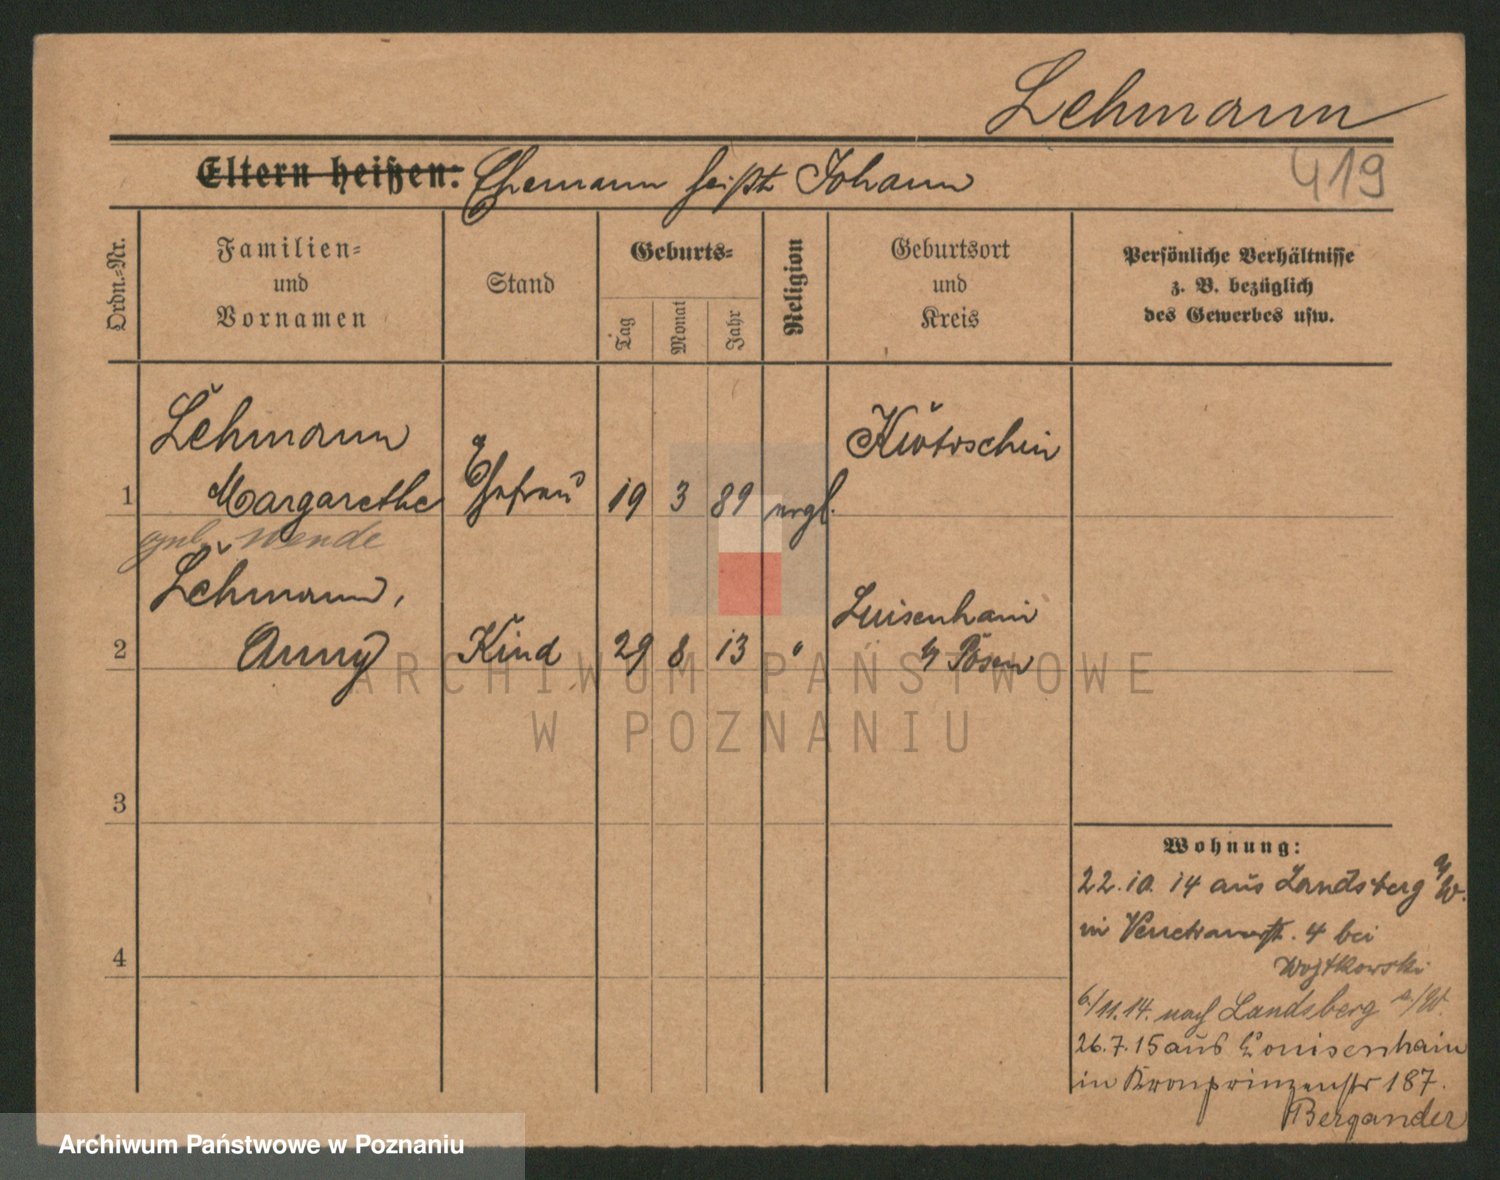 Lehmann
419
Eltern heißen: Ehemann heißt Johann
Ordn.-Nr.
Familien-
und
Vornamen
Stand
Geburts-
Tag
Monat
Jahr
Religion
Geburtsort
und
Kreis
Persönliche Verhältnisse
z. B. bezüglich
des Gewerbes usw.
Lehmann
1 Margarethe Ehefrau 19 3 89 evgl. Krotoschin
geb. Wende
Lehmann,
2 Anny Kind 29 8 13 " Luisenhain
b/ Posen
3
4
Wohnung:
22.10.14 aus Landsberg a/W.
in 4 bei
Wojtkowski
6/11.14. nach Landsberg a/W.
26.7.15 aus Louisenhain
in Kronprinzenstr 187.
Bergander
ARCHIWUM PAŃSTWOWE
W POZNANIU
Archiwum Państwowe w Poznaniu